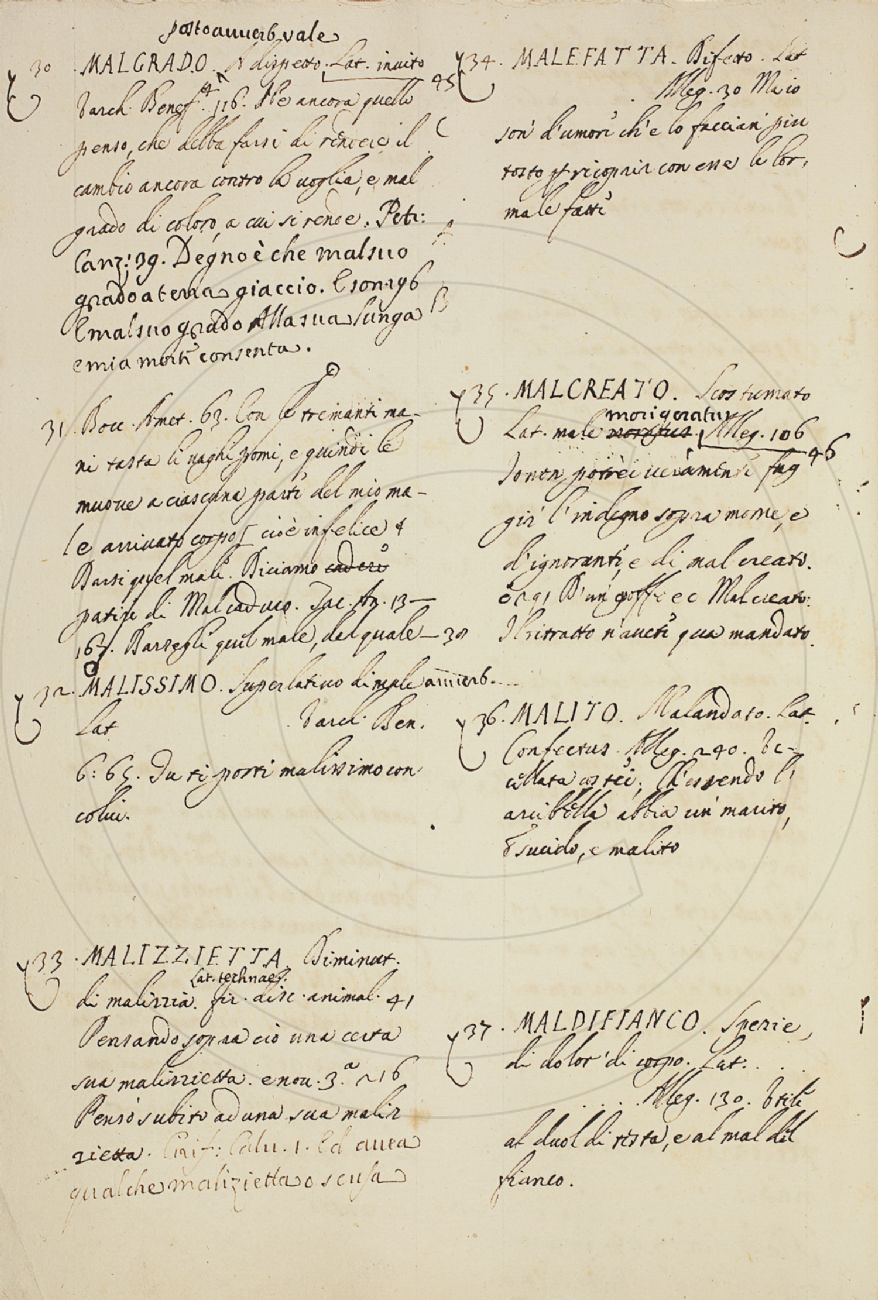 posto avverb. vale
30 . MALGRADO . A dispetto. Lat. invito
Varch. Benef. 4. 116. Ne ancora quello 45
penso, che debba farsi di rendere il
cambio ancora contro la voglia, e mal
grado di coloro, a cui si rende. Petr:
Canz: 39. Degno è che mal suo
grado a terra giaccio. E son. 196
E mal suo grado Alla sua lunga
e mia morte consenta.
31 Bocc. Amet. 63. Con le tremanti ma-
ni tasta li vaghi pomi, e quindi le
muove a ciascuna parte del mio ma-
le arrivato corpo [cioè infelice
Darsi quel male. Diciamo
patire di Malcaduco. Tac. An. 13 —
167. Darsegli quel male, del quale — 30
32. MALISSIMO. Superlativo di male avverb.
Lat. Varch. Ben.
6: 65. Tu ti porti malissimo con
colui.
33 . MALIZZIETTA. Diminut.
Lat. technae
di malizzia. fir. disc. animal. 41
Pensando sopra ciò una certa
sua malizzietta. e nov. 3.a 216
Pensò subito ad una sua maliz
zietta. Calu. 1. Ed avea
qualche malizietta o scusa
34. MALEFATTA. Difetto. Lat
Alleg. 30 Ma io
son d'umori ch'e lo faccian piu
tosto p ricoprir con esse le lor,
male fatte
35 . MALCREATO. Scostumato
morigeratus
Lat. male moratus. Alleg. 106 46
Io non potrei veramente fug
gir l'indegno sopra nome, e
d'ignorante, e di mal creato.
e 291 D'un goffo e Malcreato:
Il ritratto n'avete qua mandato
36. MALITO. Malandato. Lat.
Confectus. Alleg. 240. Ve-
cellata costei; Ch'essendo l'
arcibella abbia un marito,
Sucido, e malito
37 . MALDIFIANCO. Spezie,
di dolor' di corpo. Lat.
Alleg. 130. Utile
al duol di testa, e al mal del
fianco.